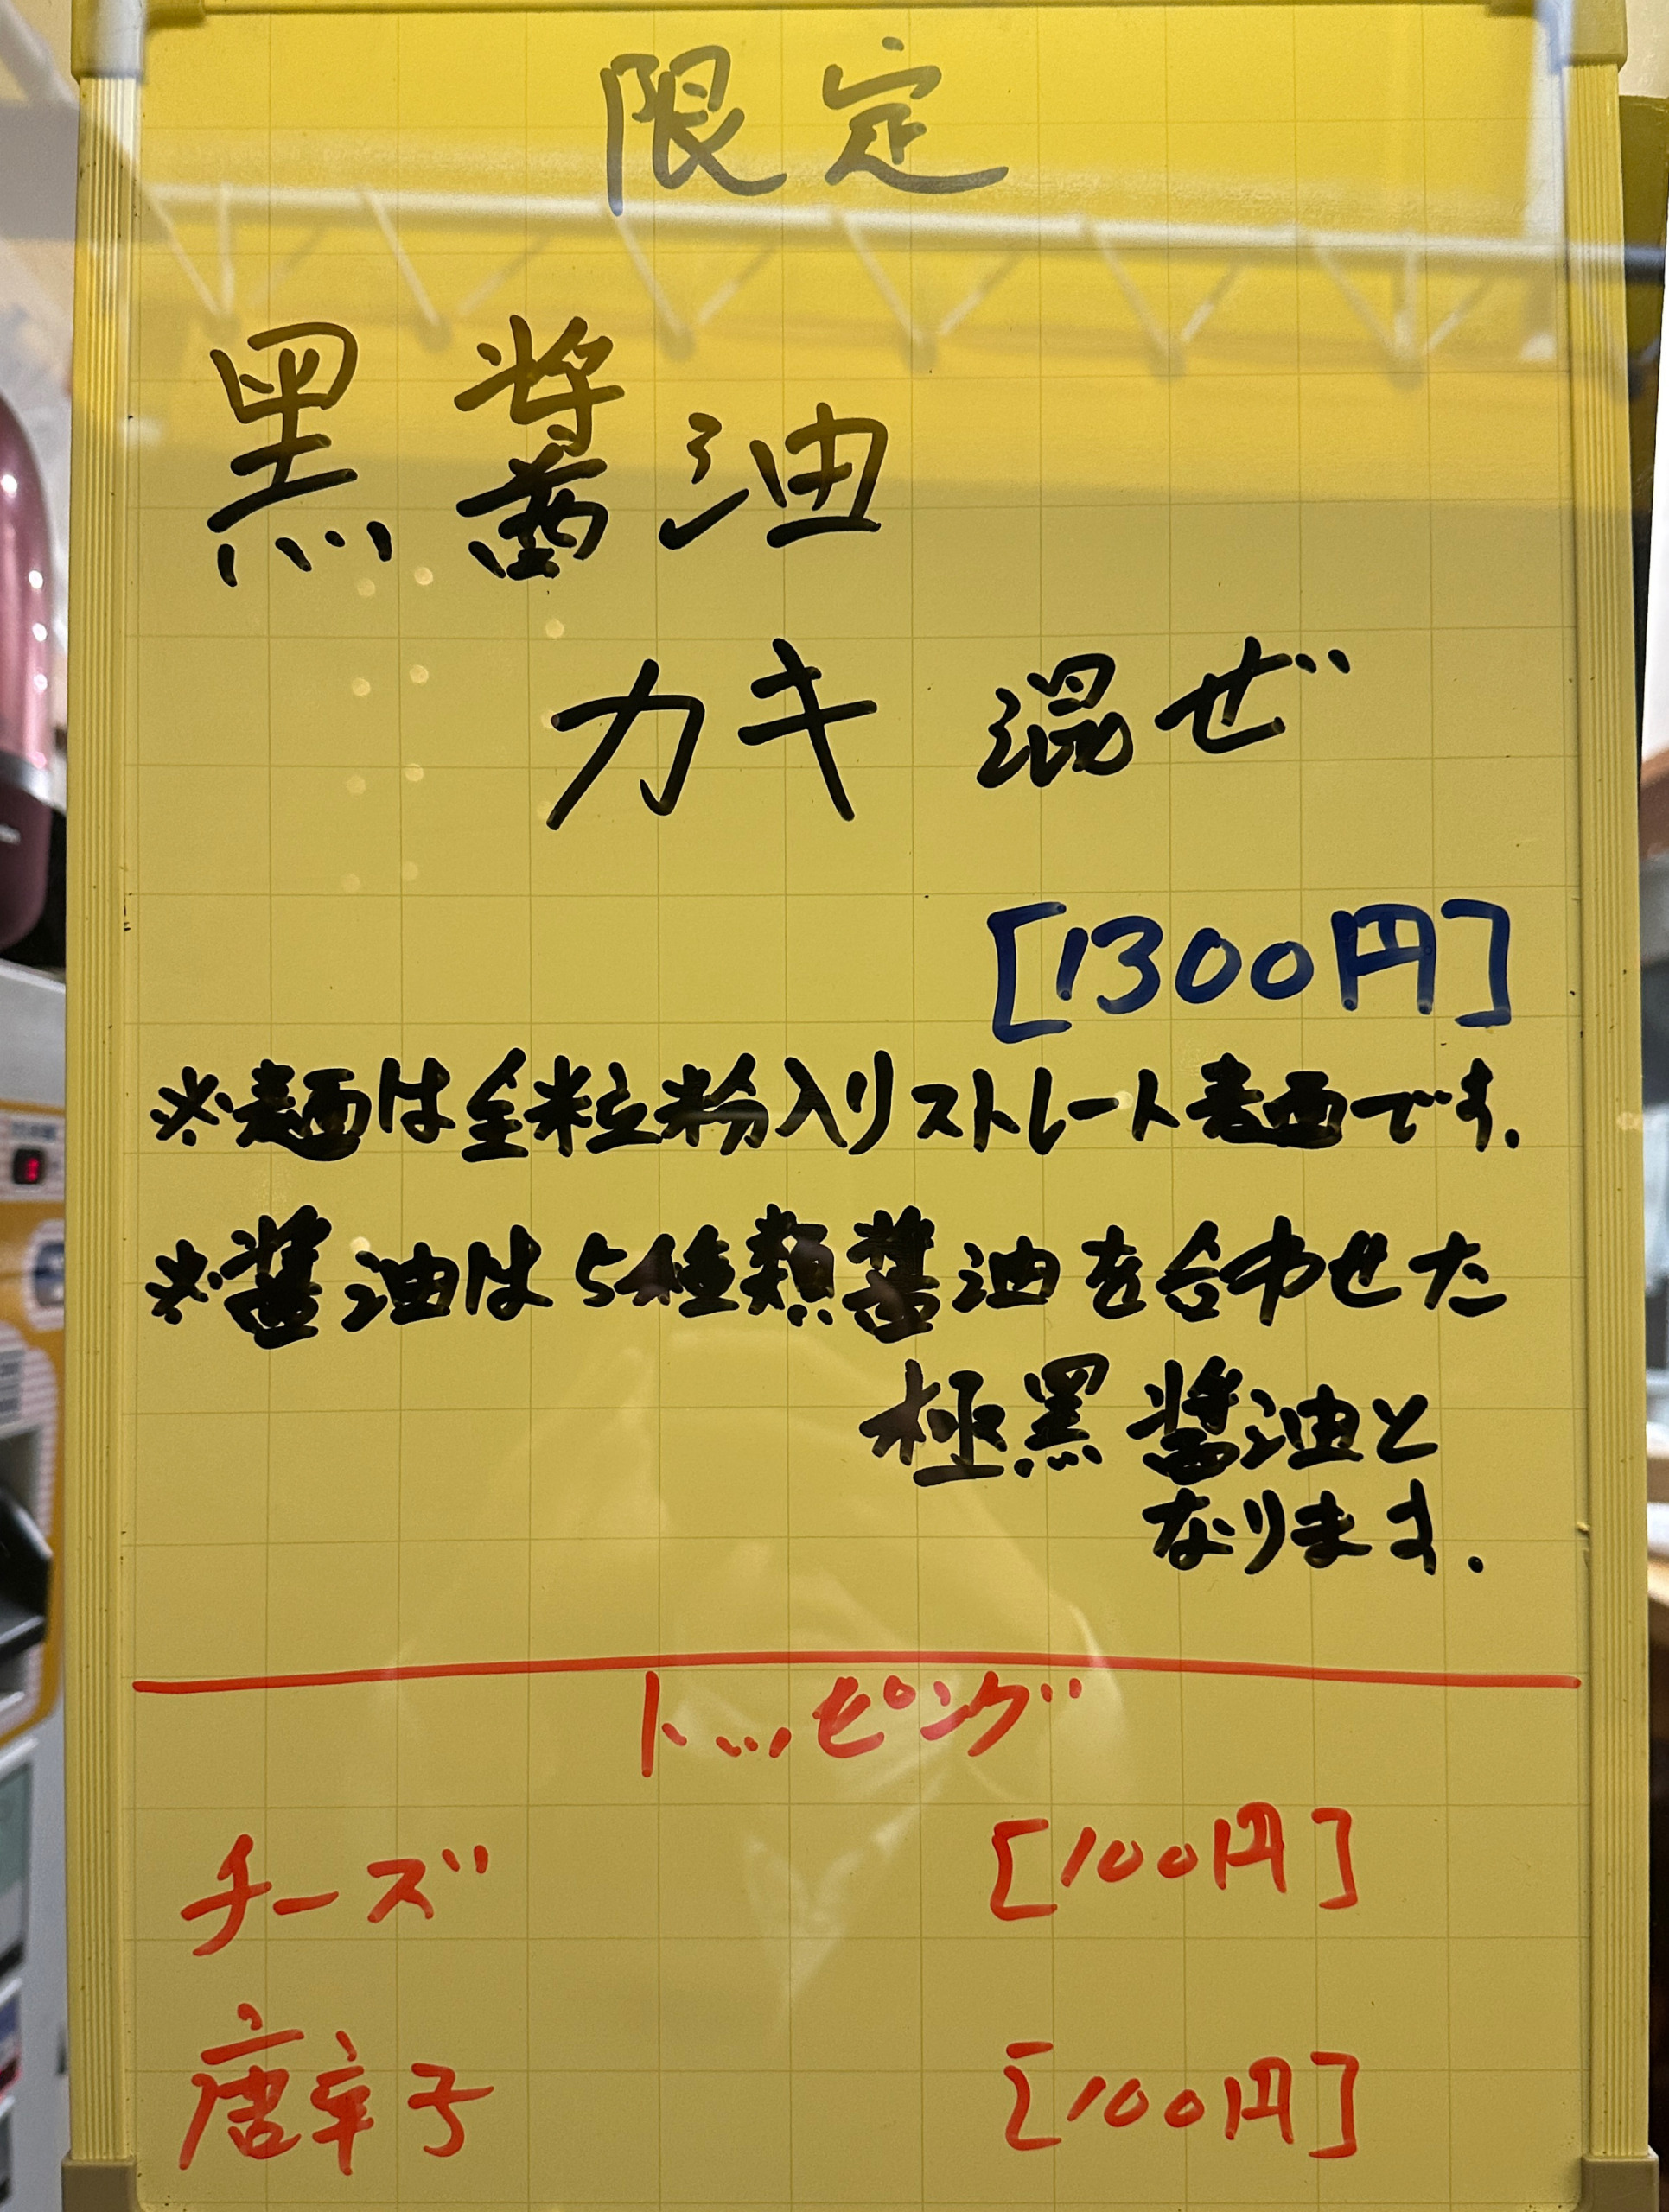 限定
黒醤油
カキ 混ぜ
[1300円]
※麺は全粒粉入りストレート麺です.
※醤油は5種類醤油を合わせた
極黒醤油と
なります.
トッピング
チーズ [100円]
唐辛子 [100円]